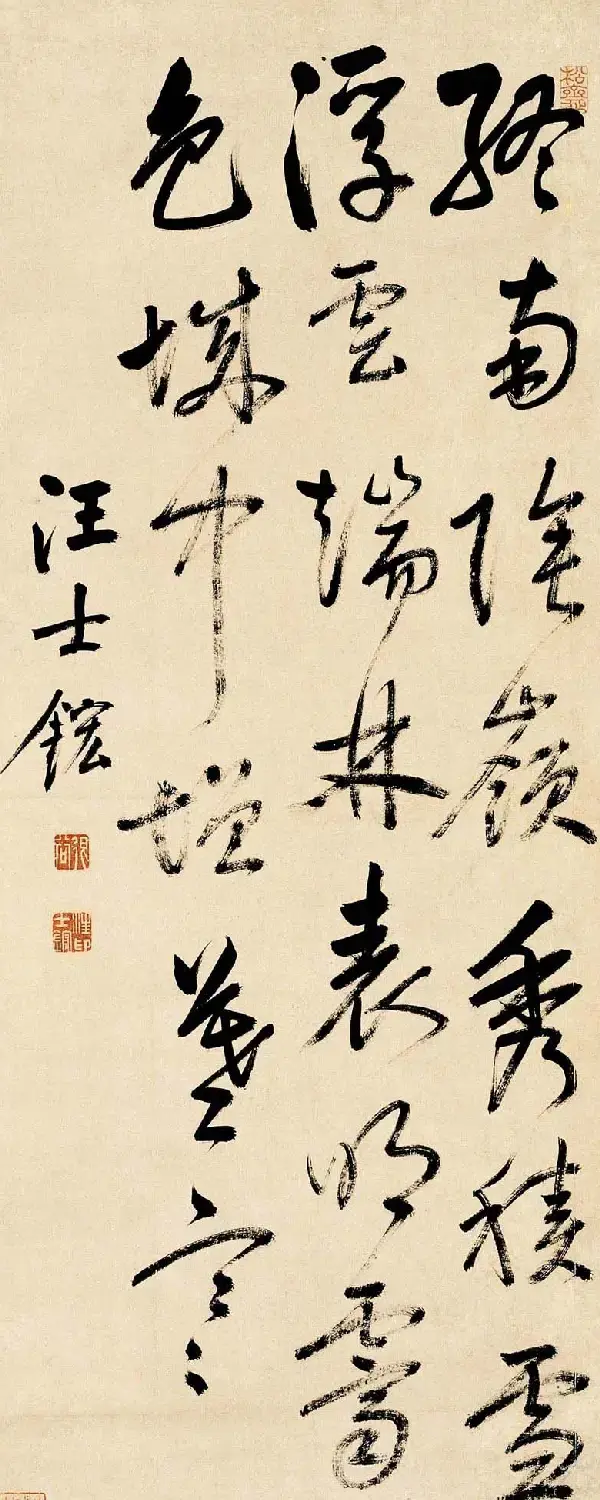 終南陰嶺秀積雪
浮雲端林表明霽
色城中增暮寒
汪士鋐
汪印士鋐